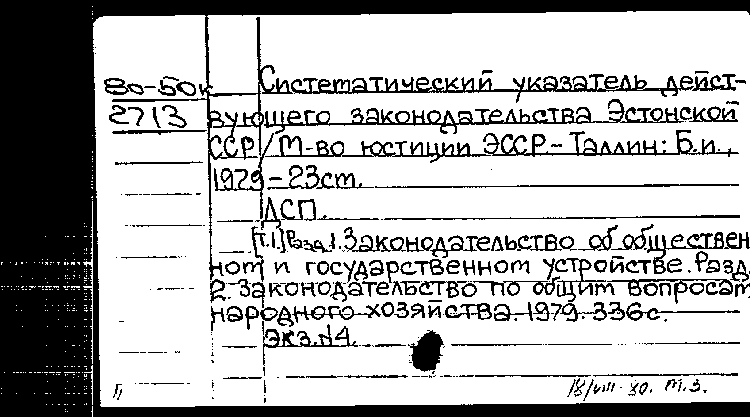 80-50к Систематический указатель дейст-
2713 вующего законодательства Эстонской
ССР / М-во юстиции ЭССР.- Таллин: Б.и.,
1979 - 23см.
ДСП.
[Т.1] Разд.1. Законодательство об обществен
ном и государственном устройстве. Разд.
2. Законодательство по общим вопросам
народного хозяйства. 1979. 336 с.
Экз.№4.
18/VIII-80. т.з.